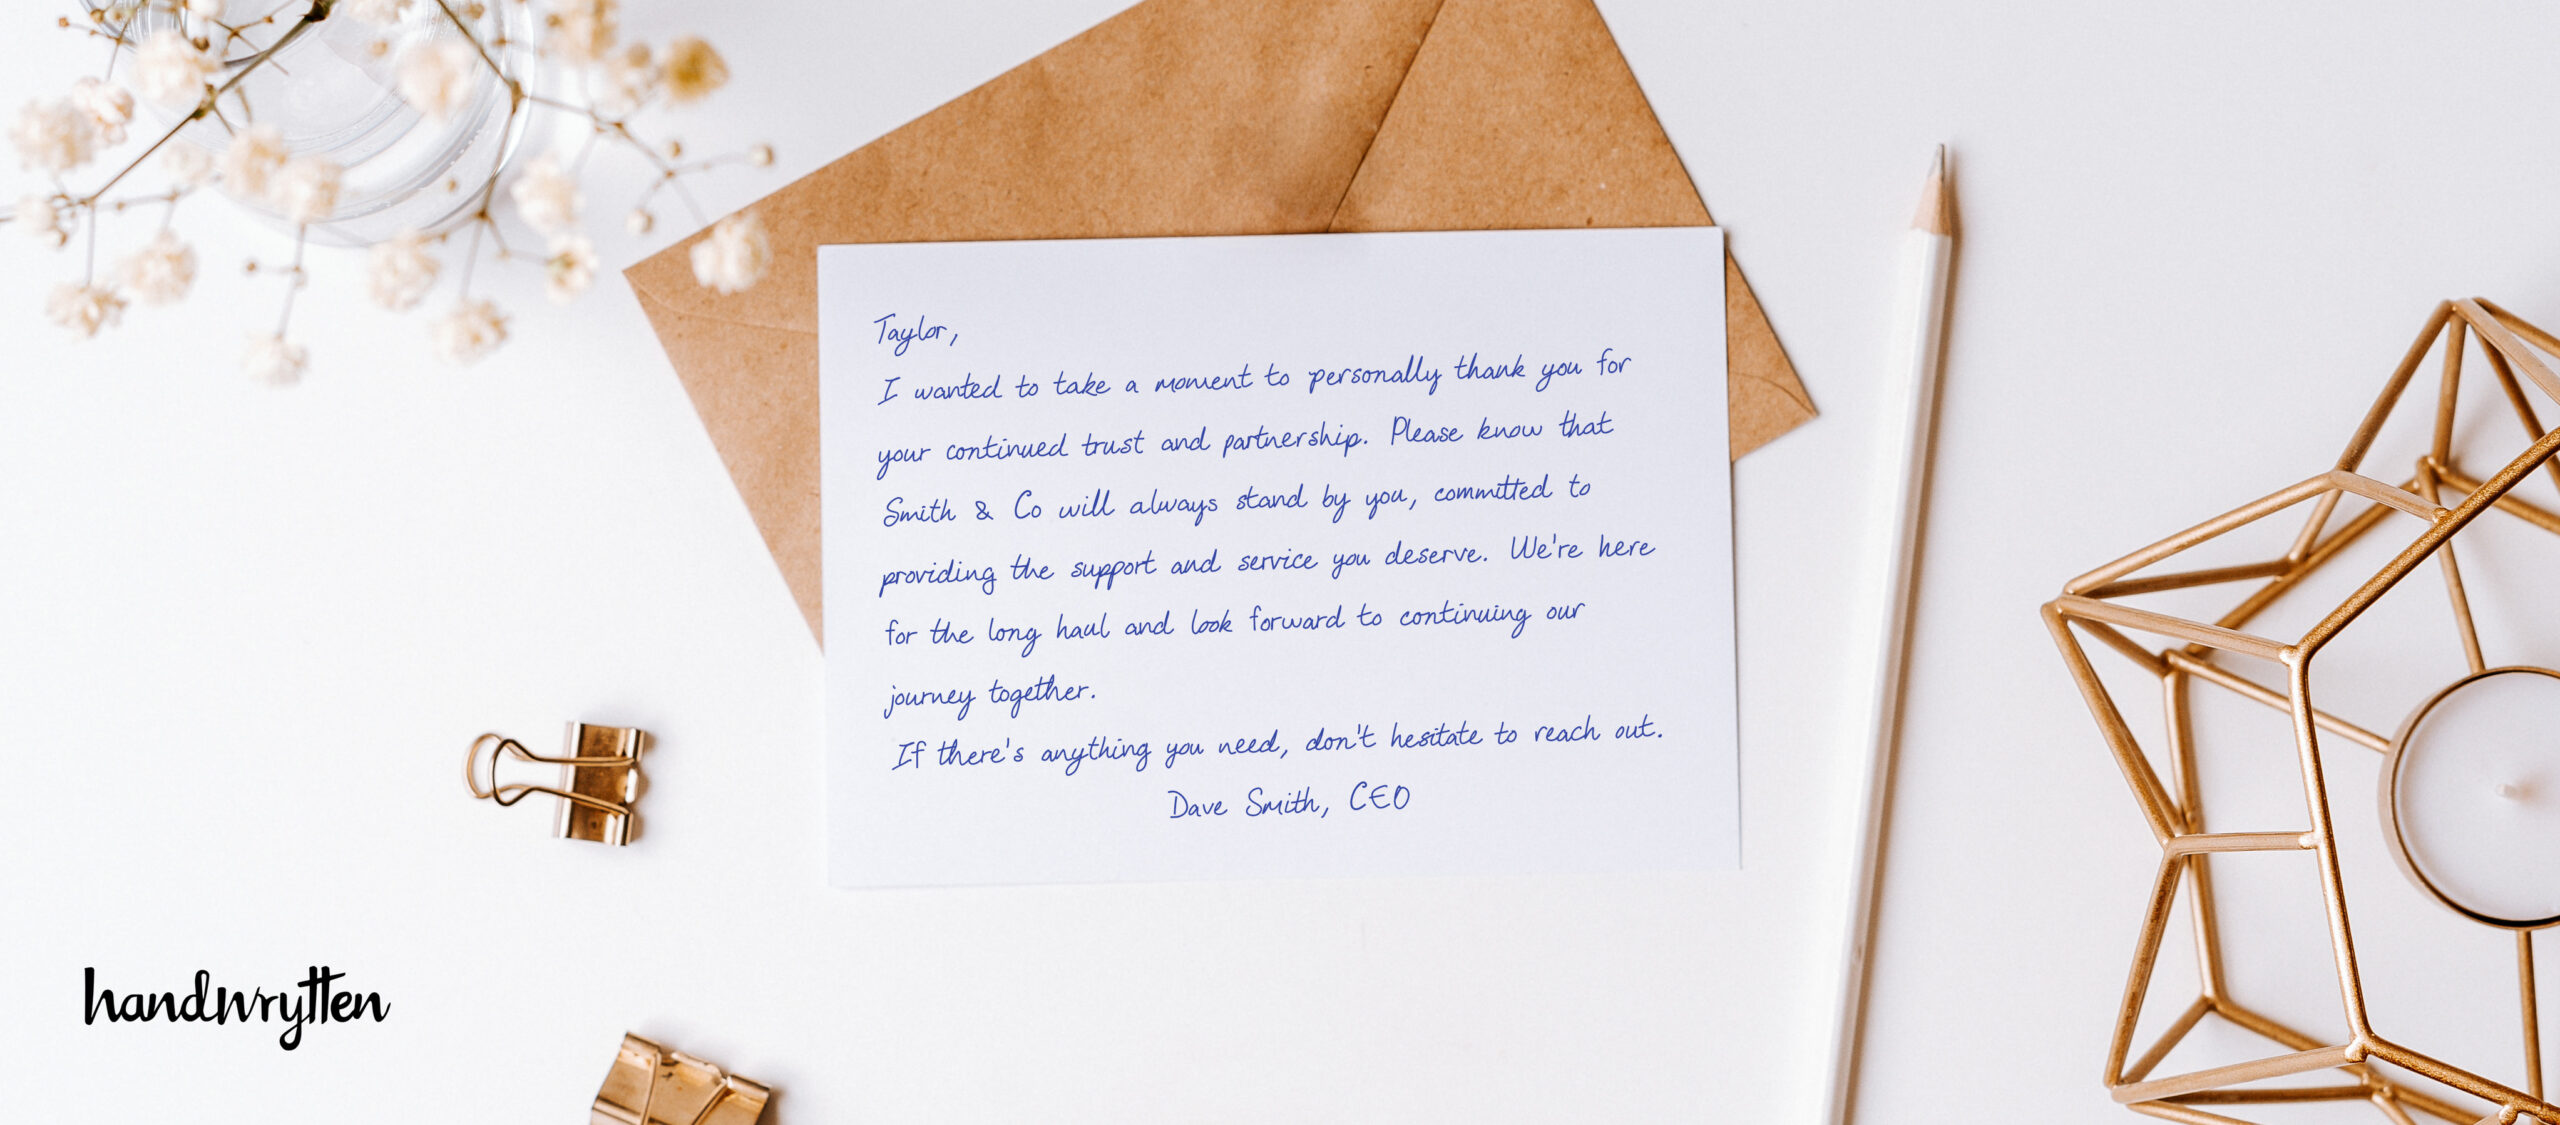 Taylor,
I wanted to take a moment to personally thank you for
your continued trust and partnership. Please know that
Smith & Co will always stand by you, committed to
providing the support and service you deserve. We're here
for the long haul and look forward to continuing our
journey together.
If there's anything you need, don't hesitate to reach out.
Dave Smith, CEO
handwrytten